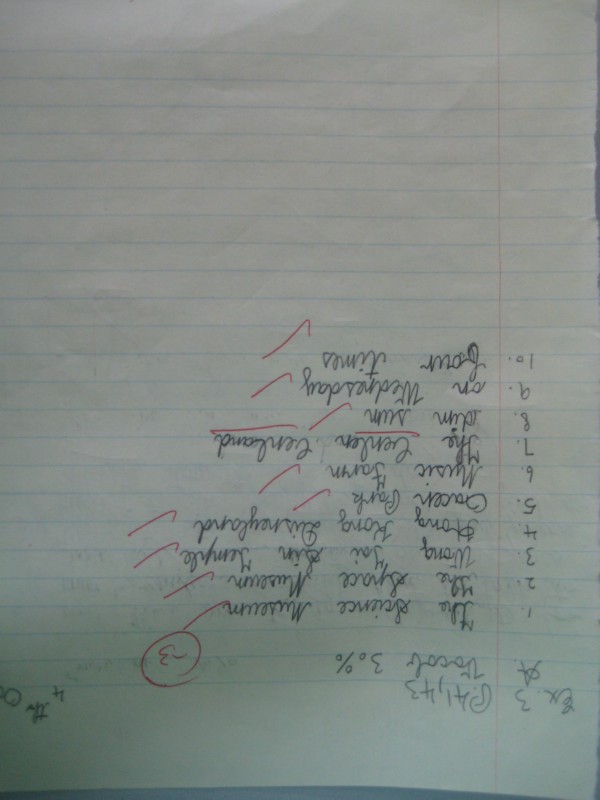 4th Oc
Ex. 3 P.41,43
A. Vocab 30%
-3
1. The Science Museum
2. The Space Museum
3. Wong Tai Sin Temple
4. Hong Kong Disneyland
5. Ocean Park
6. Music Farm
7. The
8. dim sum
9. on Wednesday
10. four times